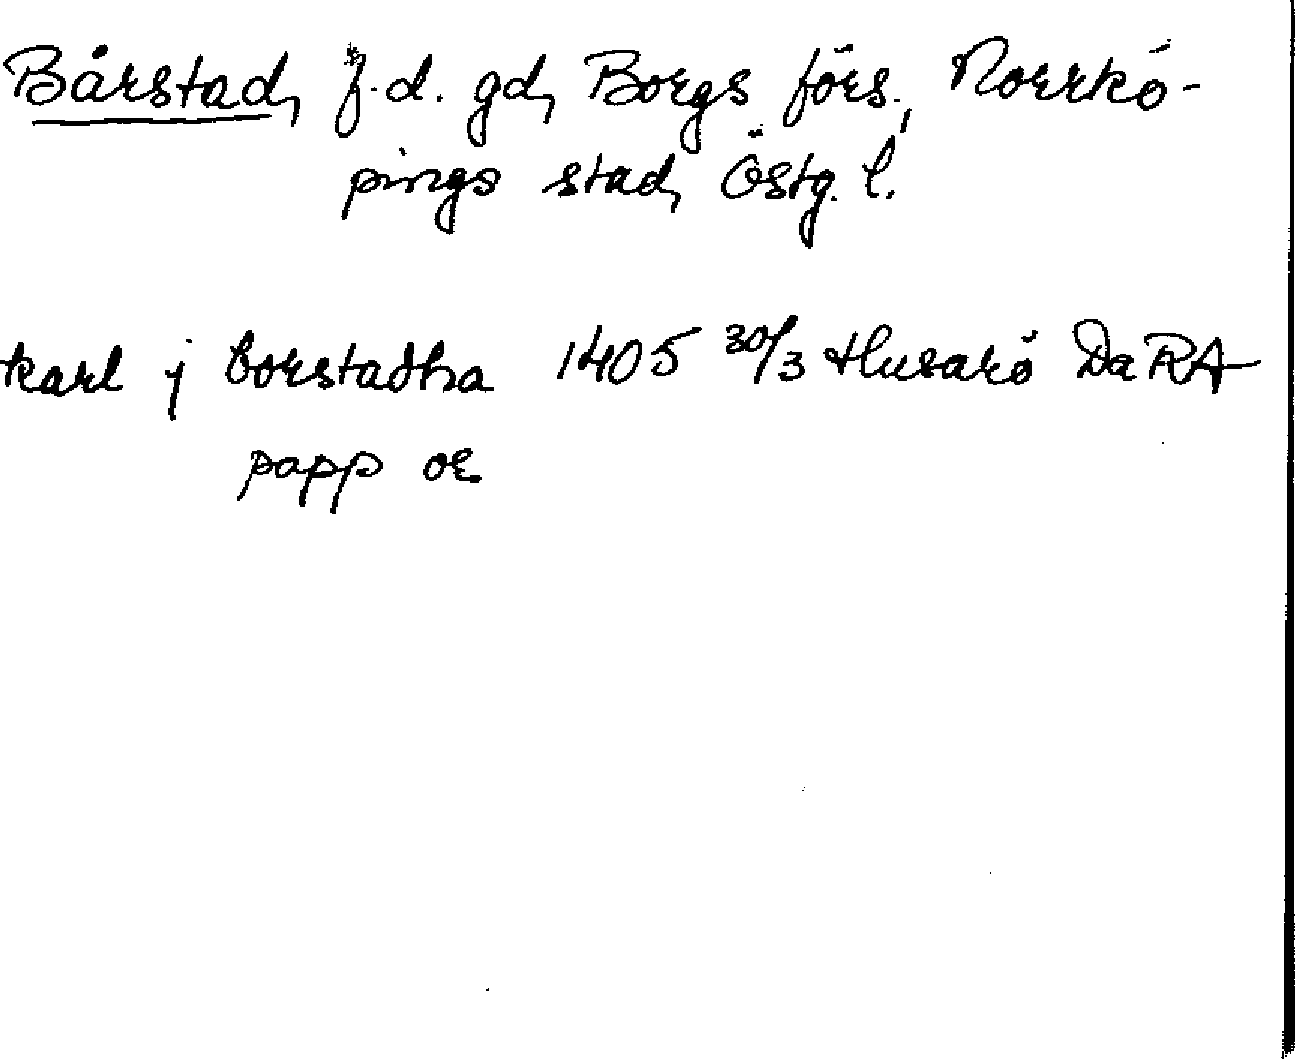 Bårstad, f.d. gd, Borgs förs., Norrkö-
pings stad, Östg. l.
karl j borstadha 1405 30/3 Husarö DaRA
papp or.